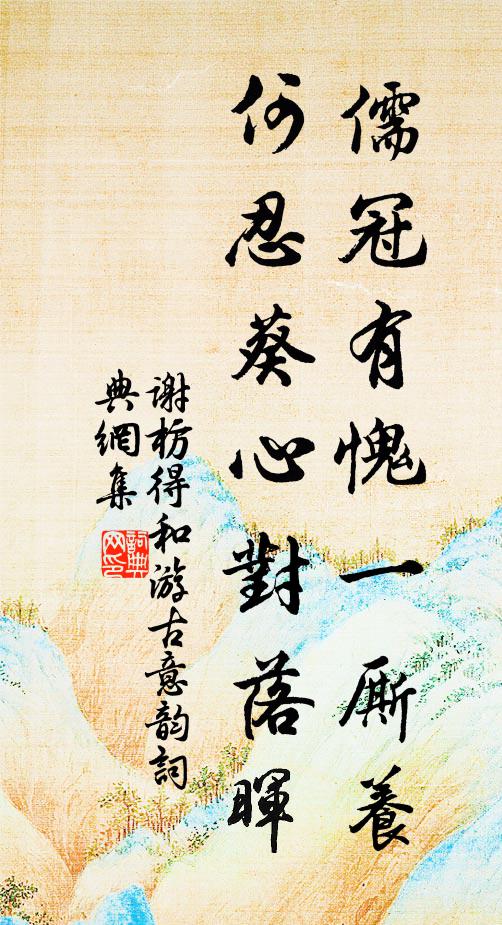 儒冠有愧一厮養
何忍葵心對落暉
謝枋得和游古意韵詞
典網集
詞典
网印